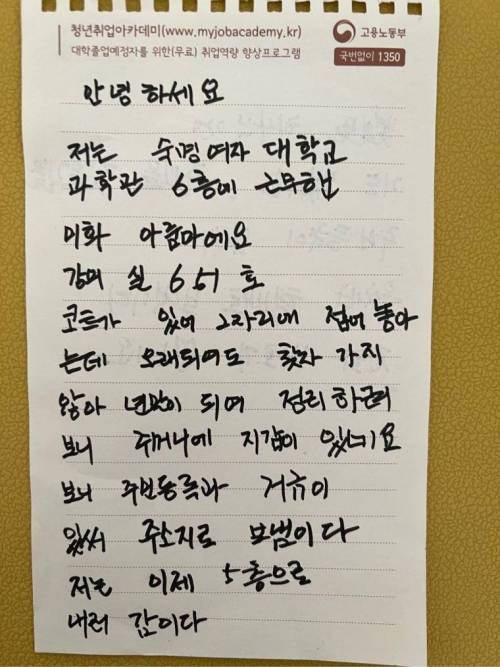 청년취업아카데미(www.myjobacademy.kr)
대학졸업예정자를 위한(무료) 취업역량 향상프로그램
고용노동부
국번없이 1350
안녕하세요
저는 숙명여자 대학교
과학관 6층에 근무햇던
미화 아줌마에요
강의 실 651 호
코트가 있어 그자리에 접어 놓아
는데 오래되여도 찾자 가지
않아 년말이 되여 정리 하려
보니 주머니에 지갑이 있느요
보니 주번등록과 거유이
있써 주소지로 보냄이다
저는 이제 5층으로
내려 감이다